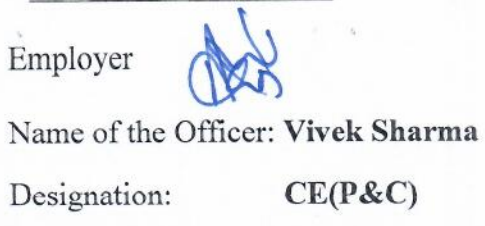 Employer
Name of the Officer: Vivek Sharma
Designation: CE(P&C)